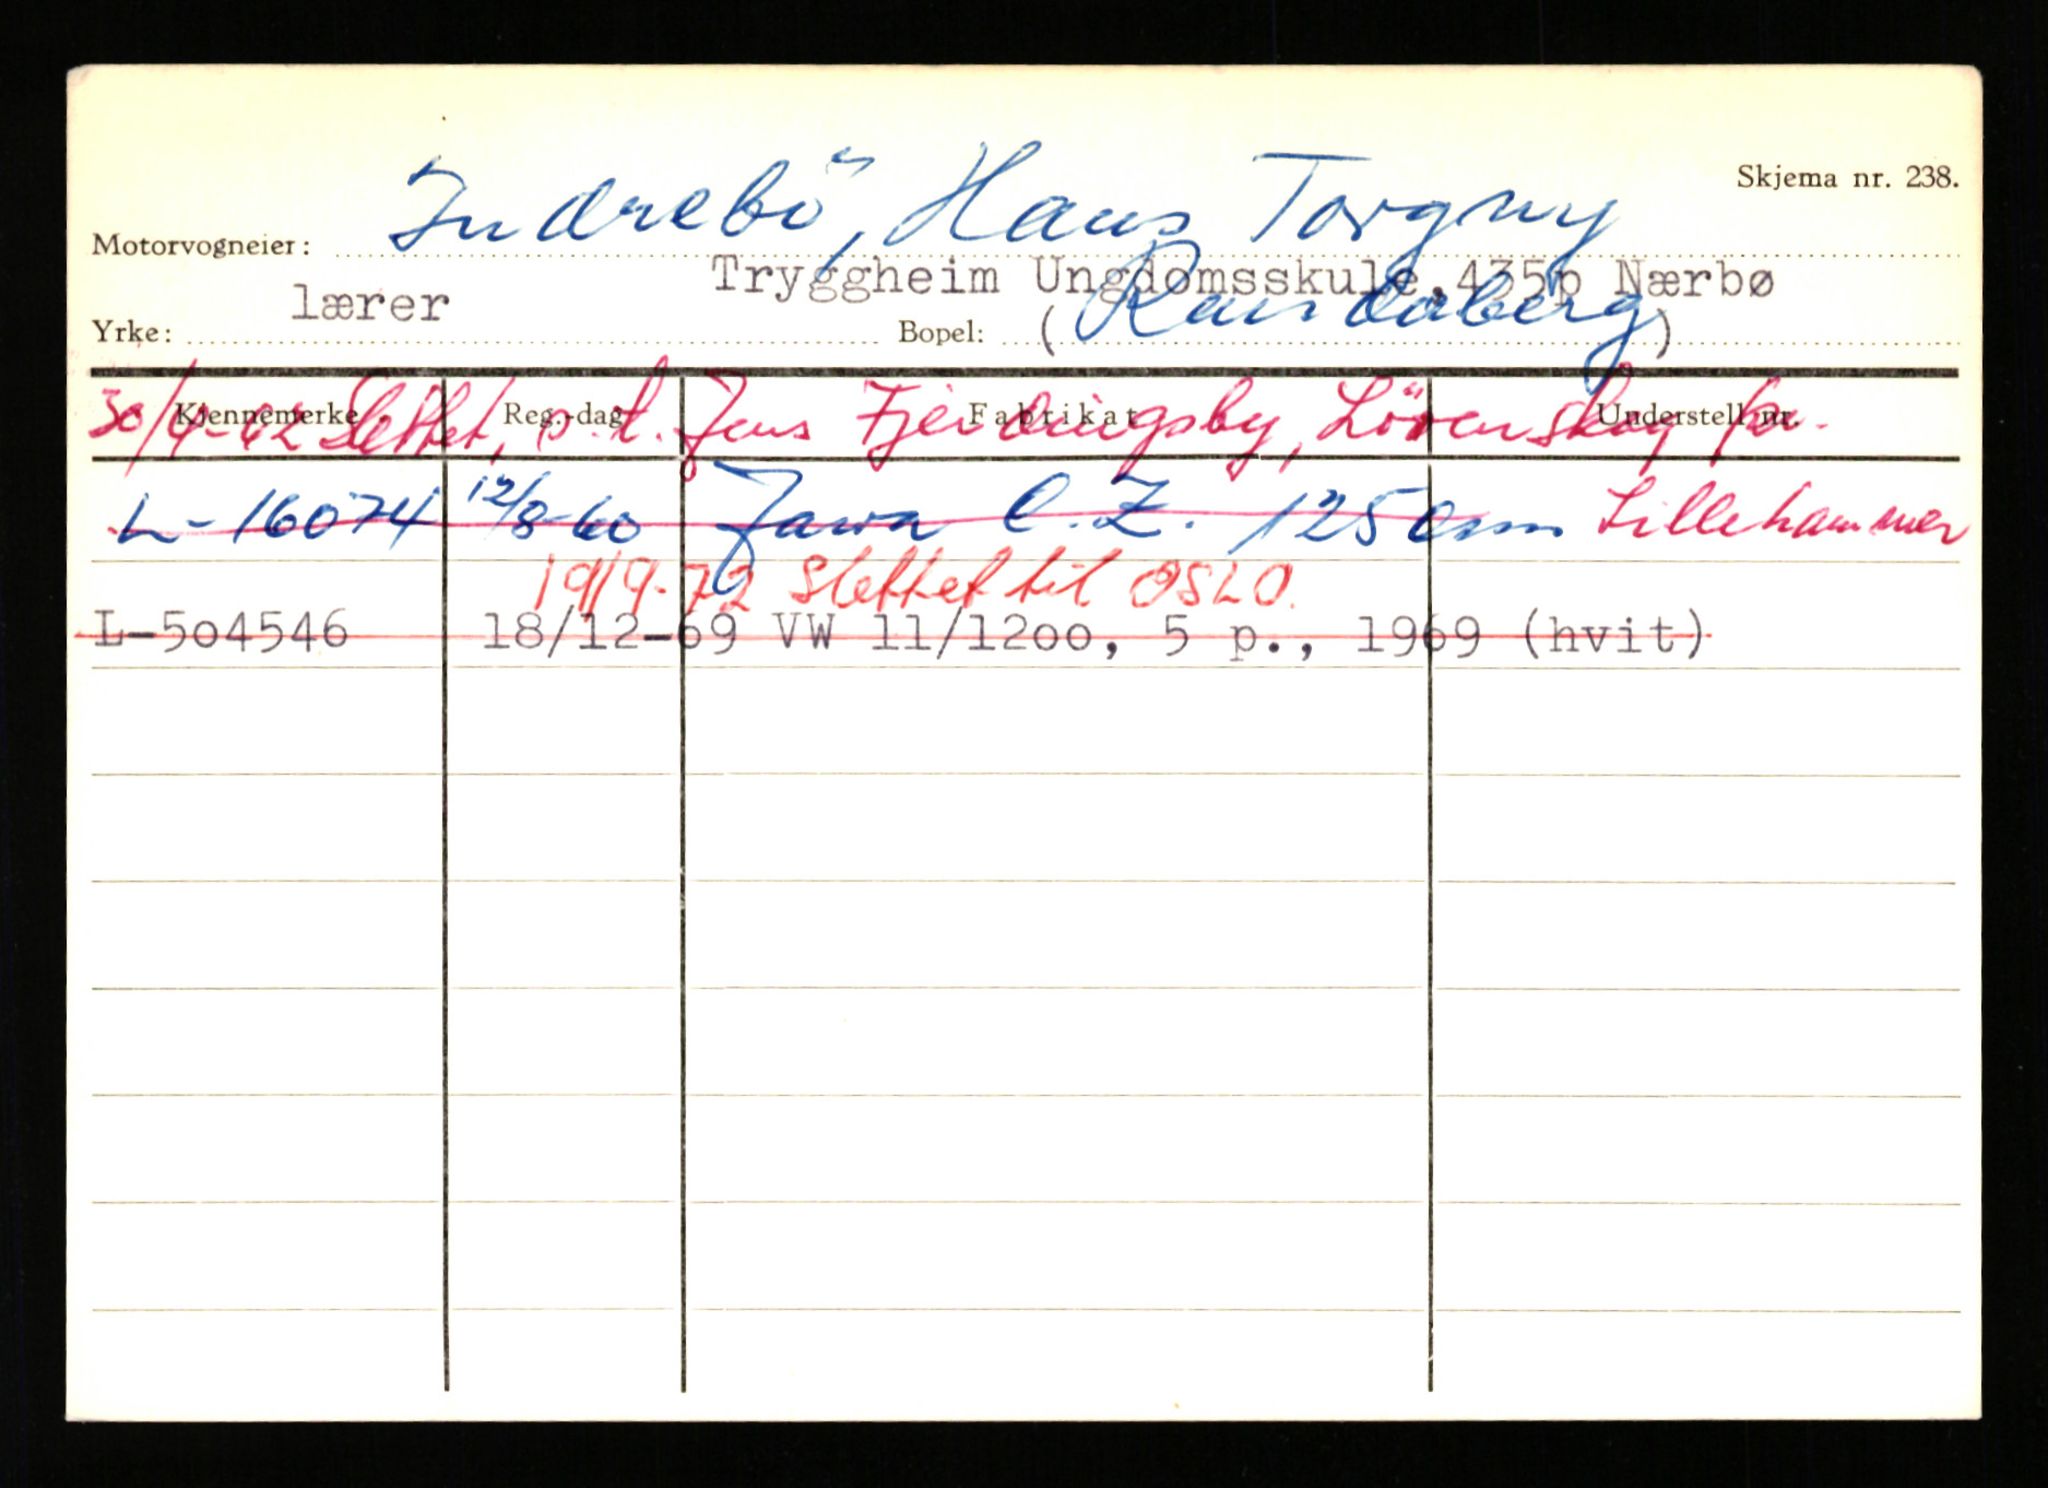 Skjema nr. 238.
Motorvogneier: Indrebö, Hans Torgny
Tryggheim Ungdomsskule, 435p Nærbø
Yrke: lærer Bopel: (Randaberg)
Kjennemerke Reg.-dag Fabrikat Understell nr.
30/4-62 Slettet, s.t. Jens Fjerdingsby, Lörenskog pr.
L-16074 12/8-60 Jawa C.Z. 125 ccm Lillehammer
19/9-72 Slettet til OSLO.
L-5o4546 18/12-69 VW 11/12oo, 5 p., 1969 (hvit)